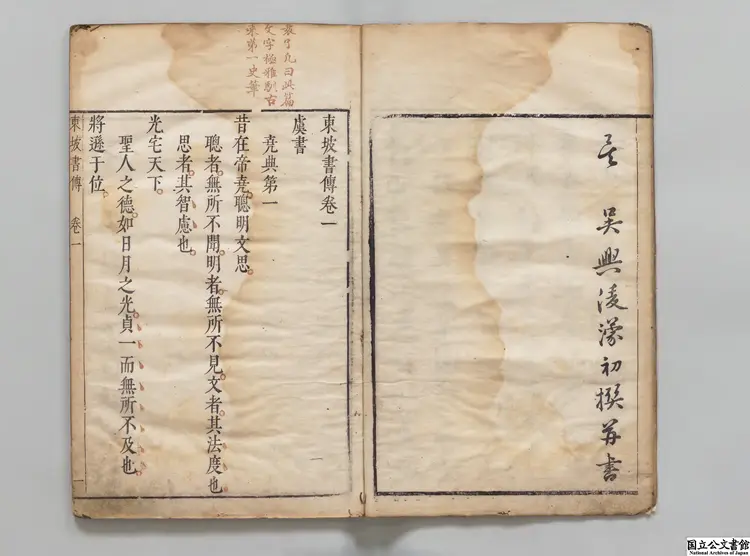 吳興凌濛初撰并書
袁了凡曰此篇
文字極雅馴古
來第一史筆
東坡書傳卷一
虞書
堯典第一
昔在帝堯聰明文思
聰者無所不聞明者無所不見文者其法度也
思者其智慮也
光宅天下
聖人之德如日月之光貞一而無所不及也
將遜于位
東坡書傳 卷一 一
国立公文書館
National Archives of Japan